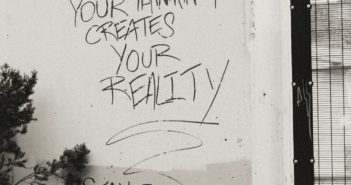 YOUR
CREATES
YOUR
REALITY